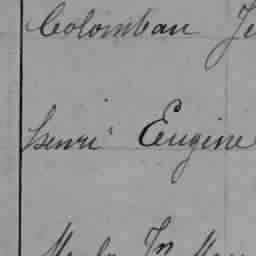 Colomban Je
henri Eugine